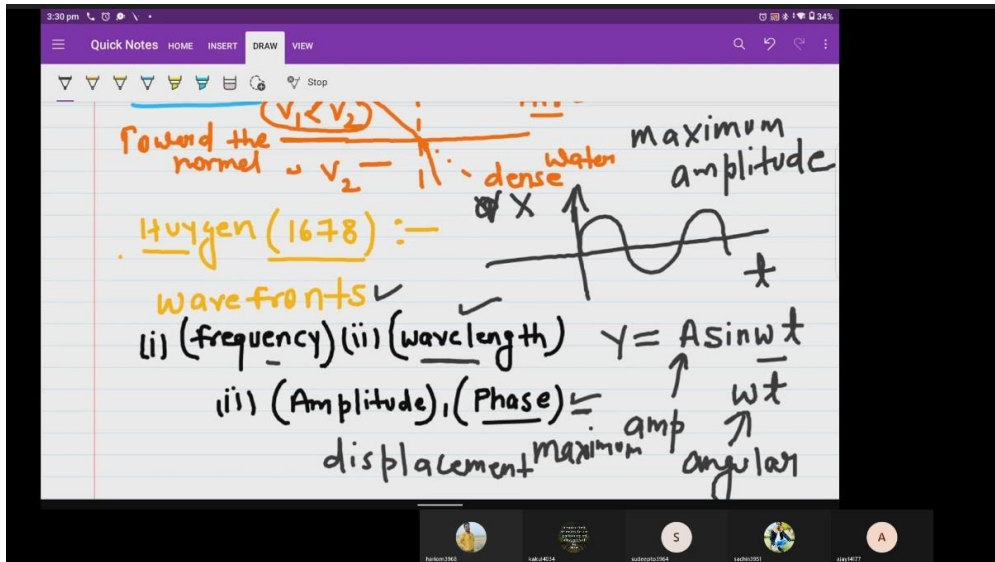 3:30 pm
34%
Quick Notes HOME INSERT DRAW VIEW
Stop
(V₁ < V₂)
Toward the
normal
V₂
dense
Water
maximum
amplitude
X
t
Huygen (1678) :-
wavefronts ✓
(i) (frequency) (ii) (wavelength) ✓
(iii) (Amplitude), (Phase)
displacement maximum
Y = A sin wt
amp
wt
angular
hariom3963
kakul4034
S
sudeepto3964
sachin3951
A
ajay14177